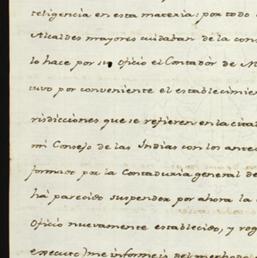 teligencia en esta materia: por todo
Alcaldes mayores cuidaban de la con
lo hace por su oficio el Contador de M
tuvo por conveniente el establecimien
risdicciones que se refieren en la cita
mi Consejo de las Indias con los ante
formado por la Contaduria general de
há parecido suspender por ahora la
Oficio nuevamente establecido, y rog
executo) me informeis del